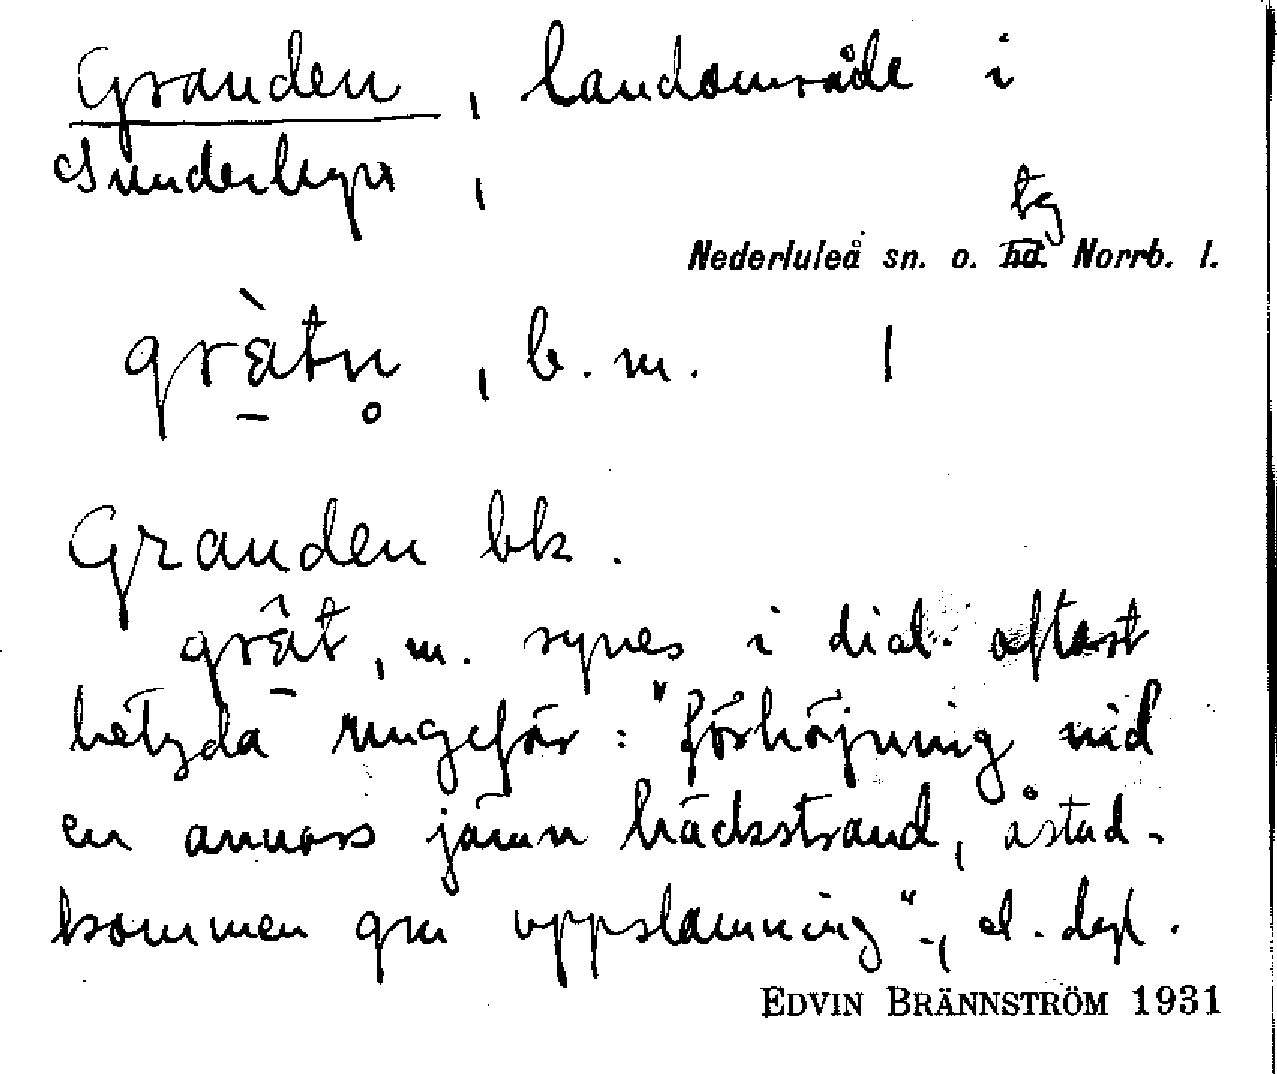 Granden, landområde i
Sunderbyn,
tg
Nederluleå sn. o. hd. Norrb. l.
gràtn̥, b. m. |
Granden bk.
grât, m. synes i dial. oftast
betyda ungefär: "förhöjning vid
en annars jämn bäckstrand, åstad-
kommen gm uppslamning", el. dyl.
EDVIN BRÄNNSTRÖM 1931